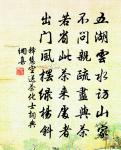 五湖雲水訪山家
不問親疏盡與茶
若省此茶來處者
出門風擺綠楊斜
釋慧空送茶化士詞典
網喜